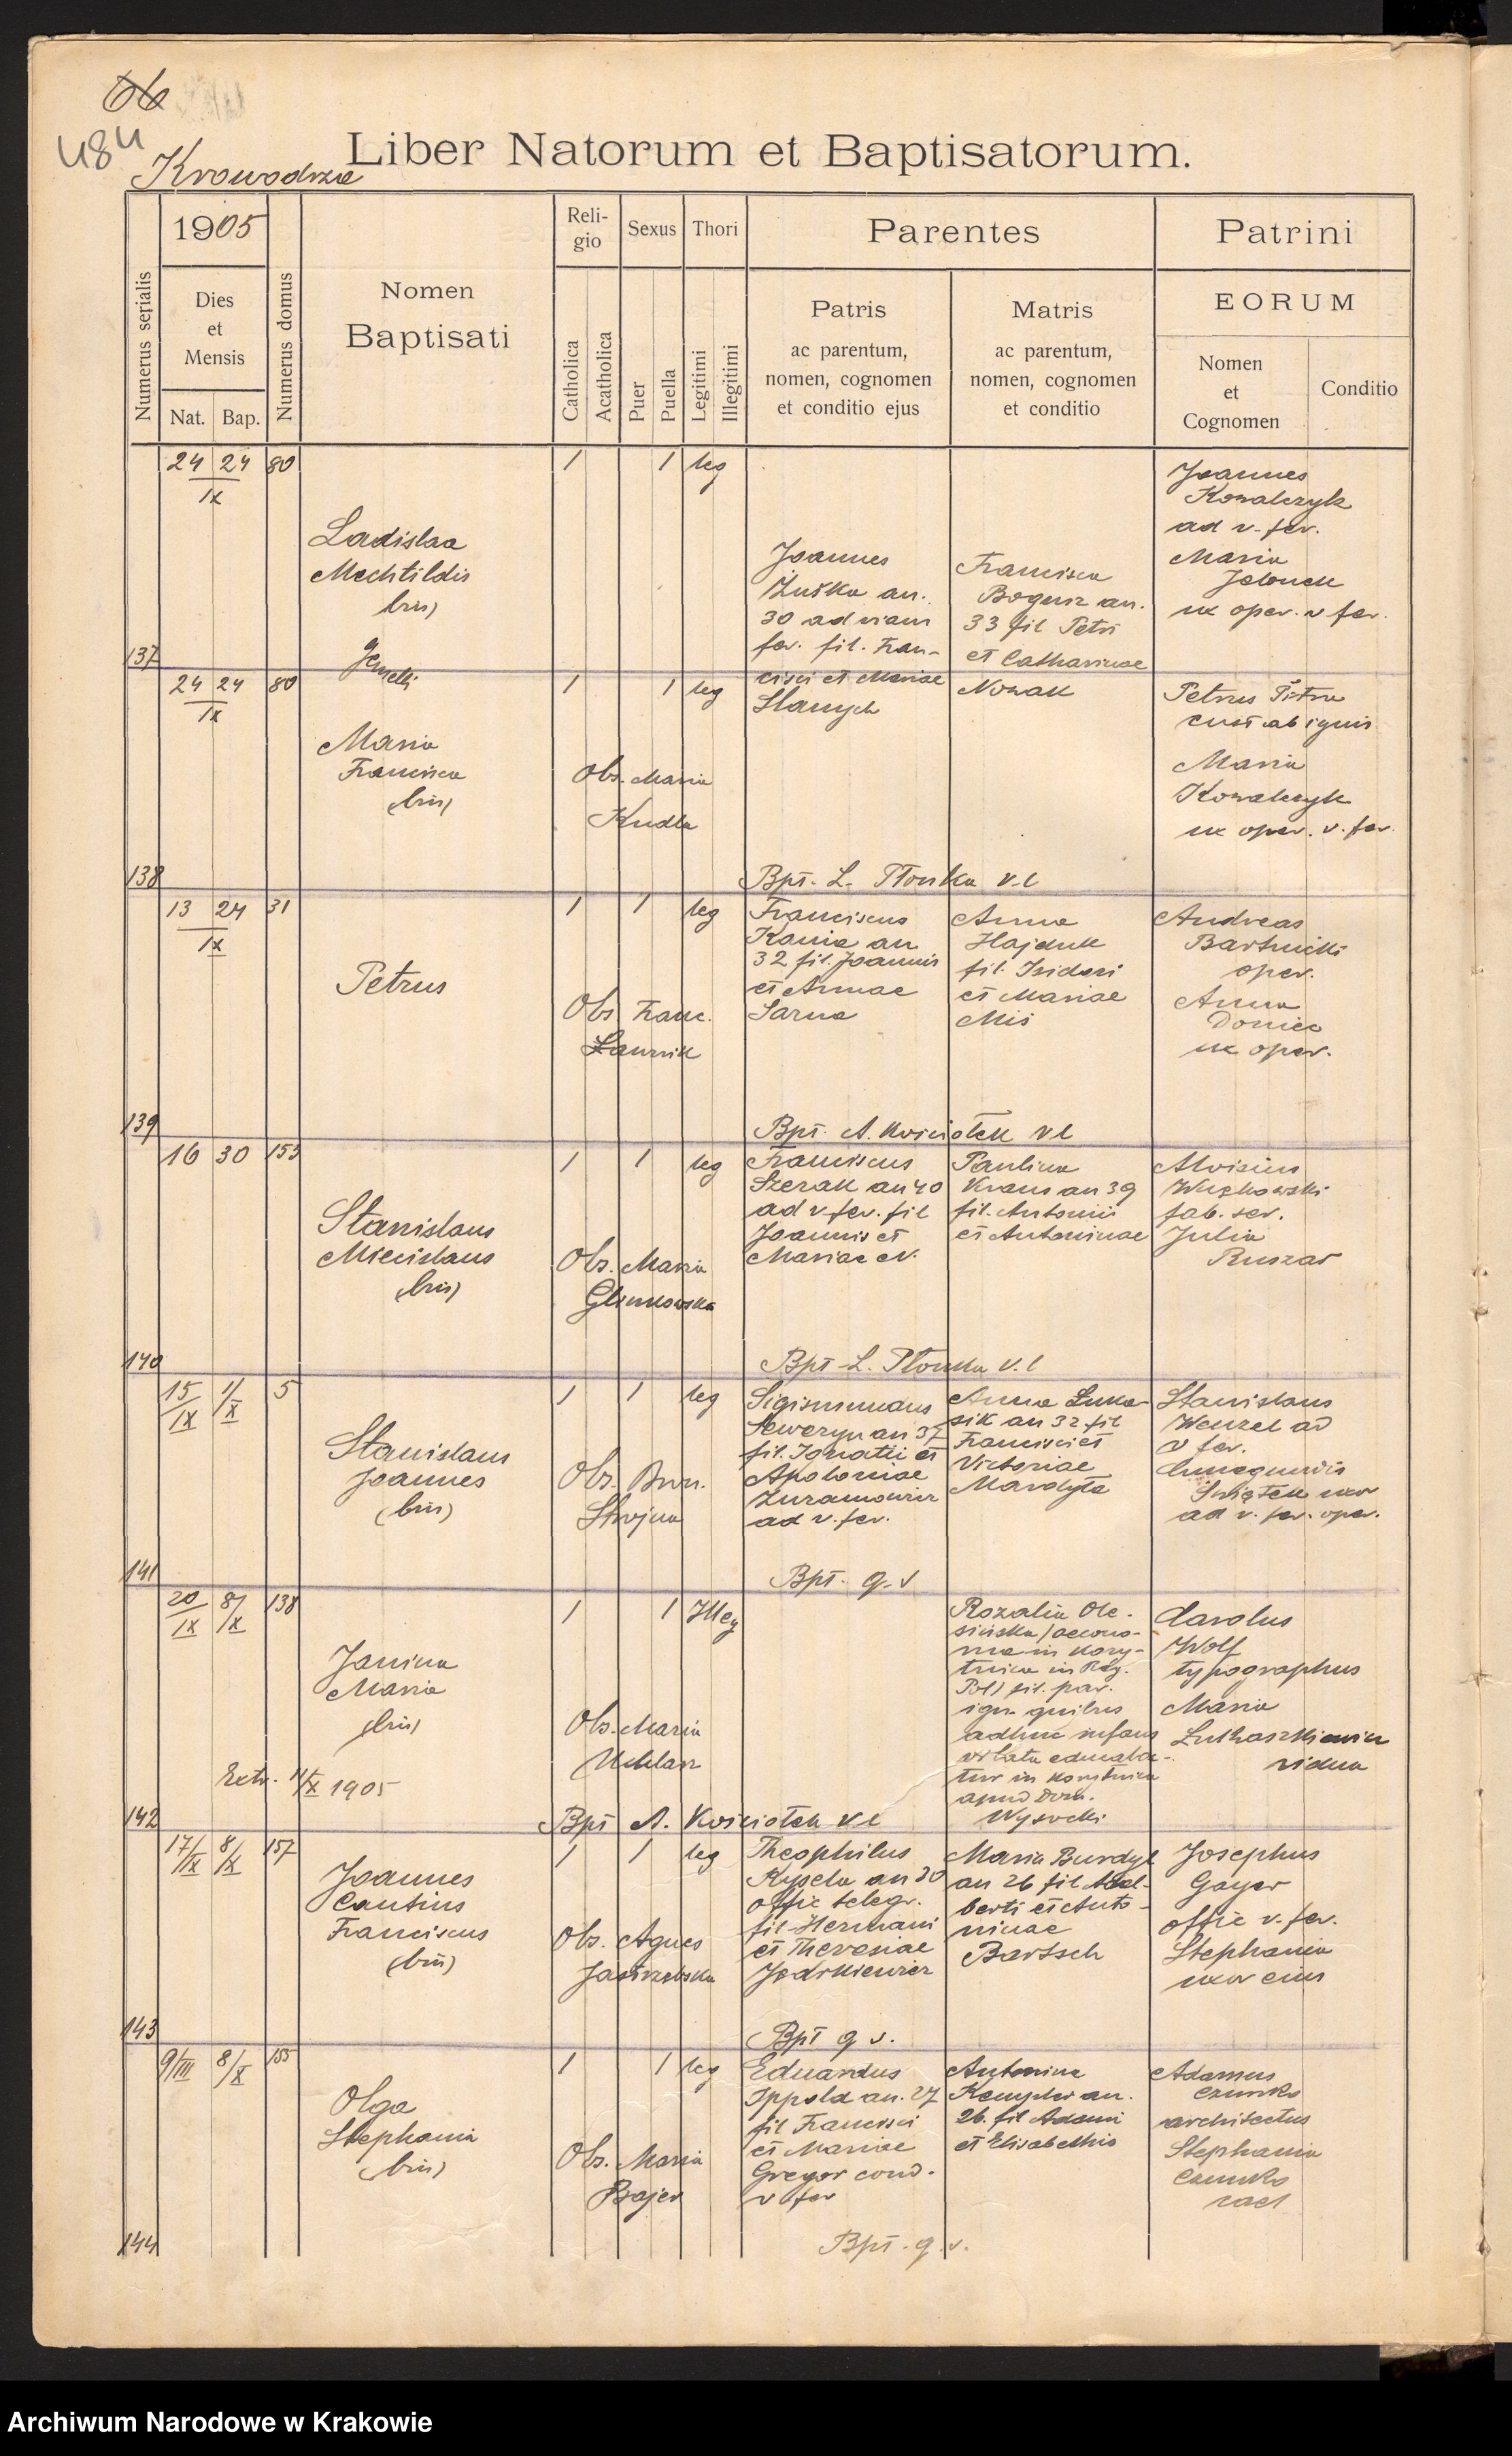 66
484
Krowodrza
Liber Natorum et Baptisatorum.
Numerus serialis
1905
Dies
et
Mensis
Nat. Bap.
Numerus domus
Nomen
Baptisati
Reli-
gio
Catholica
Acatholica
Sexus
Puer
Puella
Thori
Legitimi
Illegitimi
Parentes
Patris
ac parentum,
nomen, cognomen
et conditio ejus
Matris
ac parentum,
nomen, cognomen
et conditio
Patrini
EORUM
Nomen
et
Cognomen
Conditio
137
24 24 80
IX
Ladislaa
Mechtildis
(bin)
Gemelli
1 1 leg
Joannes
Żuśka an.
30 ad viam
fer. fil. Fran-
cisci et Mariae
Slanych
Francisca
Bogusz an.
33 fil Petri
et Catharinae
Nowak
Joannes
Kowalczyk
ad v. fer.
Maria
Jelonek
ux oper. v fer.
138
24 24 80
IX
Maria
Francisca
(bin)
1 1 leg
Obs. Maria
Kudla
Petrus Pitra
cust ab ignis
Maria
Kowalczyk
ux oper. v. fer.
Bpt. L. Płonka v.c
139
13 24 31
IX
Petrus
1 1 leg
Obs Franc.
Franciscus
Kania an
32 fil. Joannis
et Annae
Sarna
Anna
Hajduk
fil. Isidori
et Mariae
Miś
Andreas
Bartnicki
oper.
Anna
Doniec
ux oper.
Bpt. A. Kościołek v c
140
16 30 153
Stanislaus
Miecislaus
(bin)
1 1 leg
Obs. Maria
Glinkowska
Franciscus
Szerak an 40
ad v. fer. fil
Joannis et
Mariae N.
Paulina
Kraus an 39
fil. Antonii
et Antoninae
Aloisius
fab. ser.
Julia
Ruszar
Bpt L. Płonka v.c
141
15/IX 1/X 5
Stanislaus
Joannes
(bin)
1 1 leg
Obs. Brun.
Strojna
Sigismundus
Seweryn an 37
fil. Ignatii et
Apoloniae
Żuramowicz
ad v. fer.
Anna Łuka-
sik an 32 fil
Francisci et
Victoriae
Mardyła
Stanislaus
Wenzel ad
v fer.
Cunegundis
Świątek uxor
ad v. fer. oper.
Bpt. q. s
142
20/IX 8/IX 138
Janina
Maria
(bin)
Extr. 11/X 1905
1 1 Illeg
Obs. Maria
Uchlarz
Rozalia Ole-
sińska (oecono-
ma in Kory-
tnica in Reg.
Pol) fil. par.
ign. quibus
adhuc infans
orbata educaba-
tur in Korytnica
apud Dom.
Wysocki
Carolus
Wolf
typographus
Maria
Łukaszkiewicz
vidua
Bpt A. Kościołek v c
143
17/IX 8/X 157
Joannes
Cantius
Franciscus
(bin)
1 1 leg
Obs. Agnes
Jastrzebska
Theophilus
Kysela an 30
offic telegr.
fil Hermani
et Theresiae
Jodrkiewicz
Maria Burdyl
an 26 fil Adal-
berti et Anto-
ninae
Bartsch
Josephus
Gayer
offic v. fer.
Stephania
uxor eius
Bpt q s.
144
9/III 8/X 155
Olga
Stephania
(bin)
1 1 leg
Obs. Maria
Bajer
Eduardus
Ippold an. 27
fil Francisci
et Mariae
Gregor cond.
v fer
Antonina
Kempler an.
26. fil Adami
et Elisabethis
Adamus
Czunko
architectus
Stephania
Czunko
Bpt. q. s.
Archiwum Narodowe w Krakowie